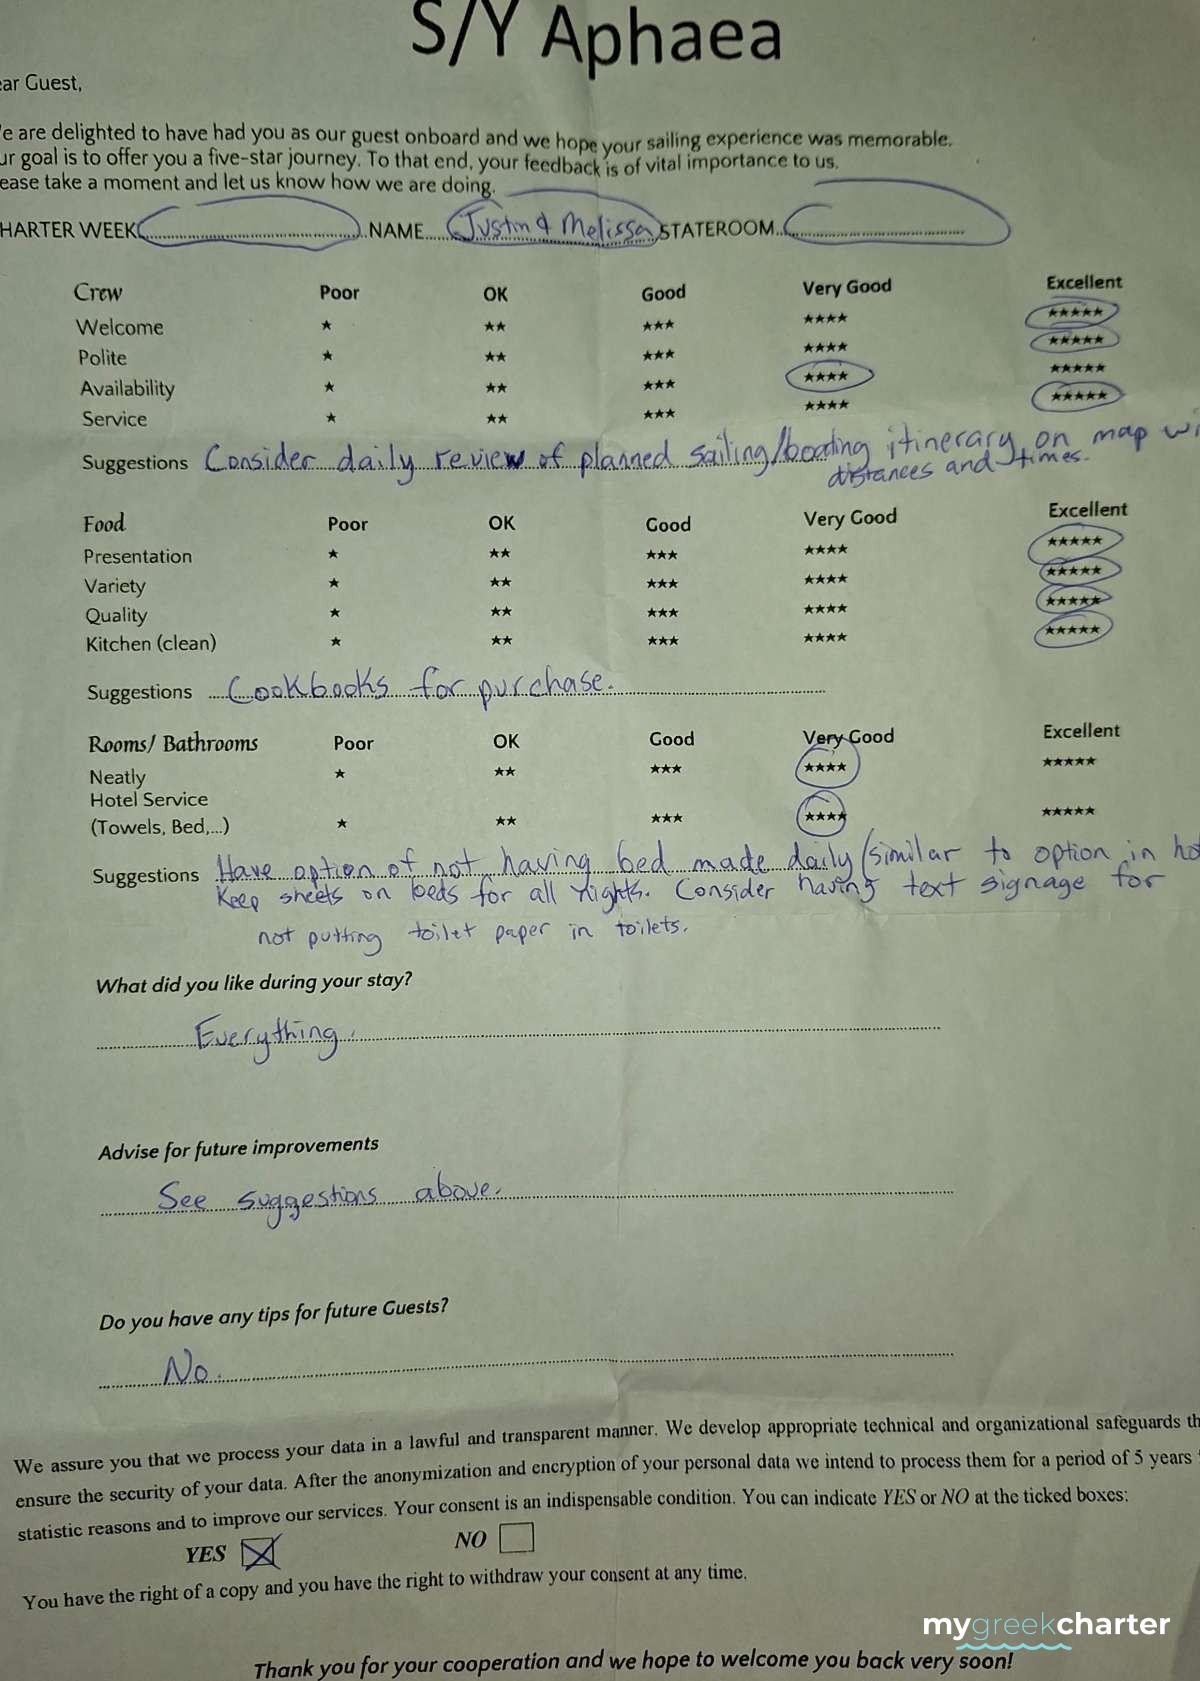 S/Y Aphaea
ear Guest,
e are delighted to have had you as our guest onboard and we hope your sailing experience was memorable.
ur goal is to offer you a five-star journey. To that end, your feedback is of vital importance to us.
ease take a moment and let us know how we are doing.
HARTER WEEK.......... NAME..... Justin & Melissa STATEROOM..........
Crew Poor OK Good Very Good Excellent
Welcome ★ ★★ ★★★ ★★★★ ★★★★★
Polite ★ ★★ ★★★ ★★★★ ★★★★★
Availability ★ ★★ ★★★ ★★★★ ★★★★★
Service ★ ★★ ★★★ ★★★★ ★★★★★
Suggestions Consider daily review of planned sailing/boating itinerary on map wi
distances and times.
Food Poor OK Good Very Good Excellent
Presentation ★ ★★ ★★★ ★★★★ ★★★★★
Variety ★ ★★ ★★★ ★★★★ ★★★★★
Quality ★ ★★ ★★★ ★★★★ ★★★★★
Kitchen (clean) ★ ★★ ★★★ ★★★★ ★★★★★
Suggestions Cookbooks for purchase.
Rooms/ Bathrooms Poor OK Good Very Good Excellent
Neatly ★ ★★ ★★★ ★★★★ ★★★★★
Hotel Service
(Towels, Bed,...) ★ ★★ ★★★ ★★★★ ★★★★★
Suggestions Have option of not having bed made daily (similar to option in hot
Keep sheets on beds for all nights. Consider having text signage for
not putting toilet paper in toilets.
What did you like during your stay?
Everything.
Advise for future improvements
See suggestions above.
Do you have any tips for future Guests?
No.
We assure you that we process your data in a lawful and transparent manner. We develop appropriate technical and organizational safeguards th
ensure the security of your data. After the anonymization and encryption of your personal data we intend to process them for a period of 5 years
statistic reasons and to improve our services. Your consent is an indispensable condition. You can indicate YES or NO at the ticked boxes:
YES NO
You have the right of a copy and you have the right to withdraw your consent at any time.
mygreekcharter
Thank you for your cooperation and we hope to welcome you back very soon!